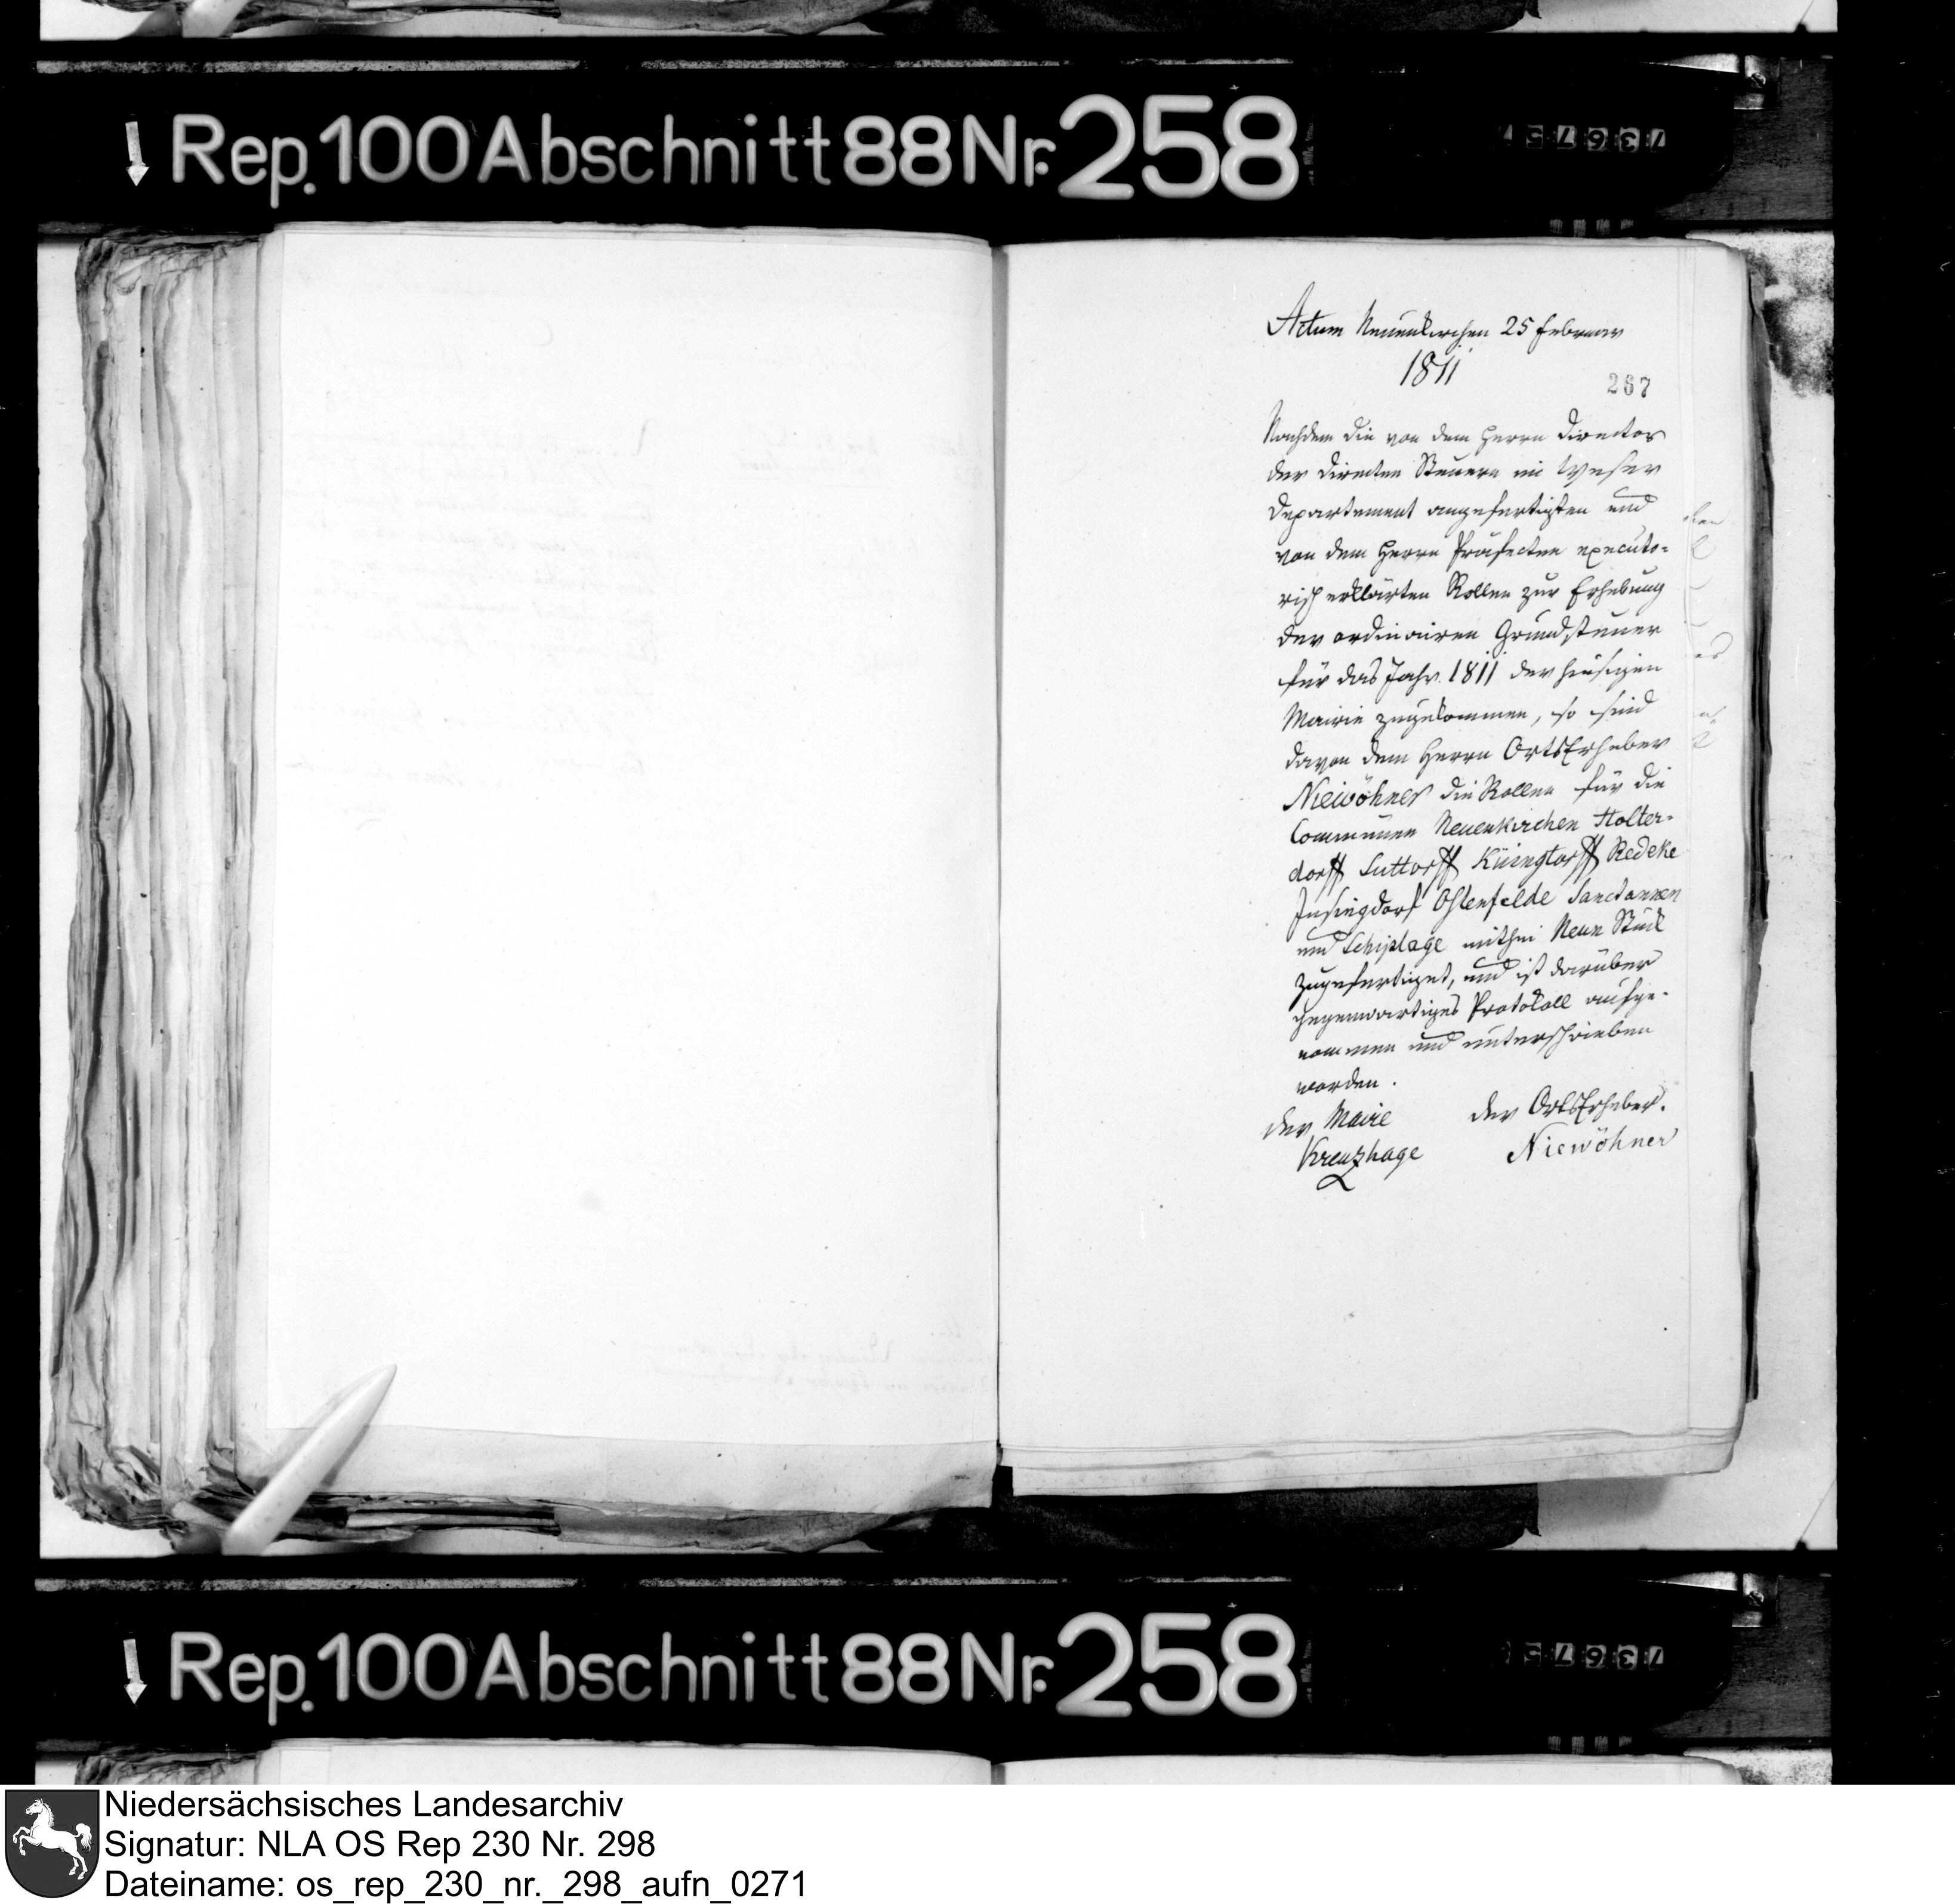 Rep. 100 Abschnitt 88 Nr. 258
73675
Actum Neuenkirchen 25 Februar
1811
267
Nachdem die von dem Herrn Director
der directen Steuern im Weser
Departement angefertigten und
von dem Herrn Präfecten executo-
risch erklärten Rollen zur Erhebung
der ordinairen Grundsteuer
für das Jahr 1811 der hiesigen
Mairie zugekommen, so sind
davon dem Herrn OrtsErheber
Niewöhner die Rollen für die
Communen Neuenkirchen Holter-
dorff Suttorff Küingtorff Redeke
Insingdorf Ostenfelde Sanctannen
und Schiplage mithin Neun Stück
zugefertiget, und ist darüber
gegenwartiges Protokoll aufge-
nommen und unterschrieben
worden.
der Maire der OrtsErheber.
Kreuzhage Niewöhner
Rep. 100 Abschnitt 88 Nr. 258
Niedersächsisches Landesarchiv
Signatur: NLA OS Rep 230 Nr. 298
Dateiname: os_rep_230_nr._298_aufn_0271